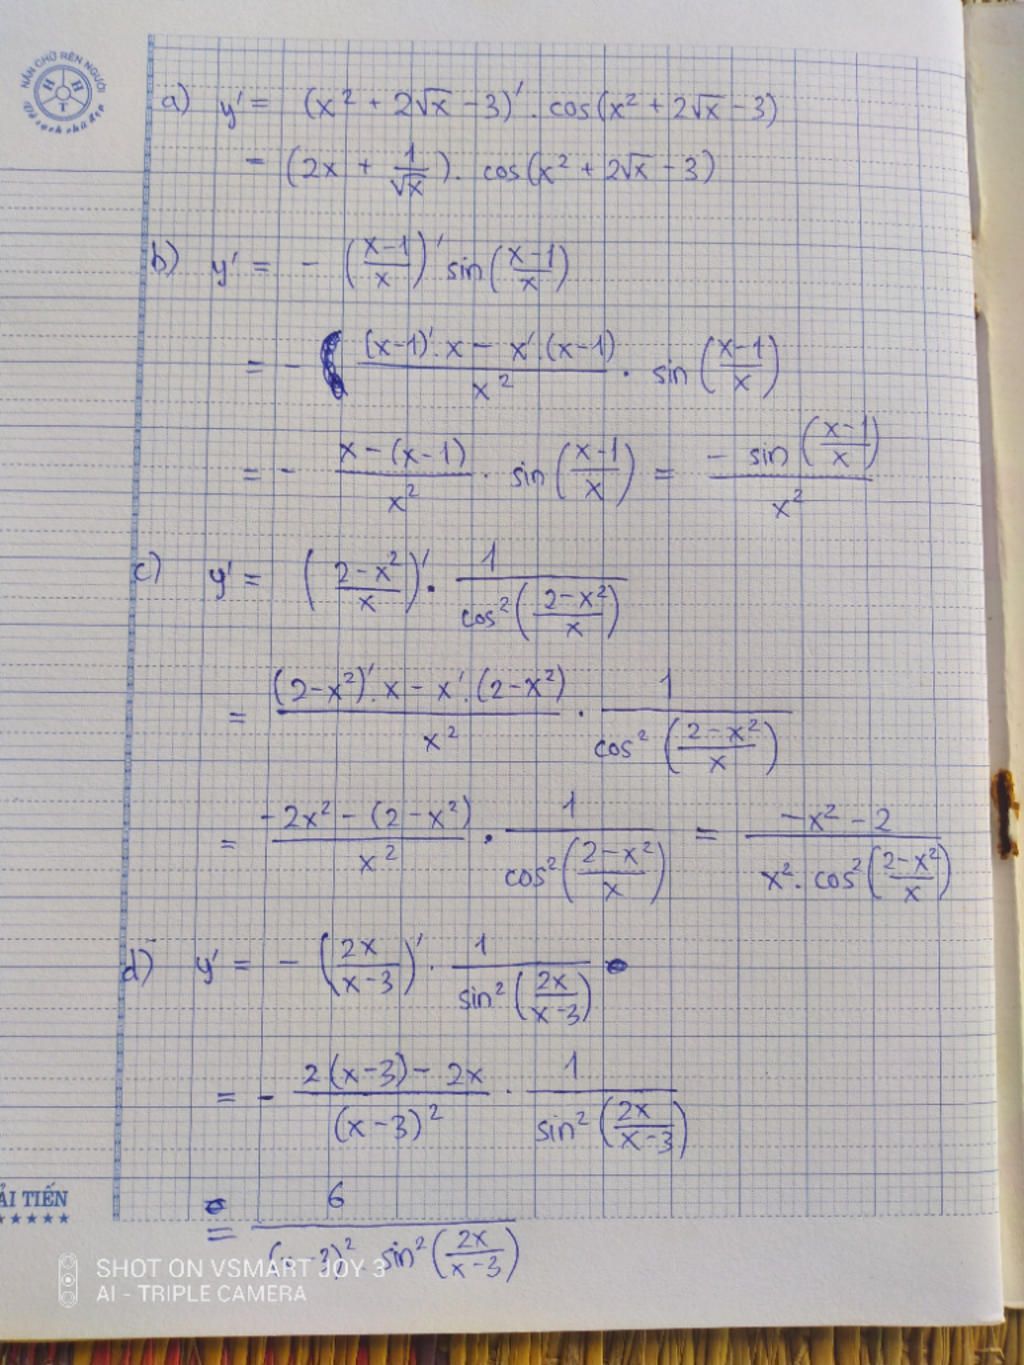 NẮN CHỮ RÈN NGƯỜI
H H T
a) y' = (x² + 2√x - 3)' . cos(x² + 2√x - 3)
= (2x + 1/√x) . cos(x² + 2√x - 3)
b) y' = - ((x-1)/x)' sin((x-1)/x)
= - ((x-1)'.x - x'.(x-1))/x² . sin((x-1)/x)
= - (x-(x-1))/x² . sin((x-1)/x) = (- sin((x-1)/x))/x²
c) y' = ((2-x²)/x)' . 1/(cos²((2-x²)/x))
= ((2-x²)'.x - x'.(2-x²))/x² . 1/(cos²((2-x²)/x))
= (-2x² - (2-x²))/x² . 1/(cos²((2-x²)/x)) = (-x² - 2)/(x² . cos²((2-x²)/x))
d) y' = - (2x/(x-3))' . 1/(sin²(2x/(x-3)))
= - (2(x-3) - 2x)/(x-3)² . 1/(sin²(2x/(x-3)))
= 6/((x-3)² . sin²(2x/(x-3)))
ẢI TIẾN
★★★★★
SHOT ON VSMART JOY 3
AI - TRIPLE CAMERA